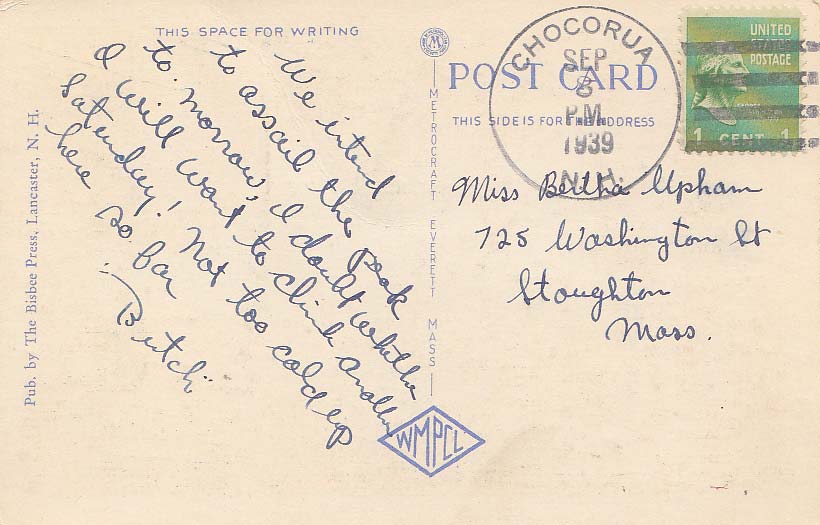 THIS SPACE FOR WRITING
We intend
to assail the peak
to-morrow, I doubt whether
I will want to climb another
Saturday! Not too cold up
here so far
:) Butch
Pub. by The Bisbee Press, Lancaster, N. H.
M
METROCRAFT EVERETT MASS
WMPCL
POST CARD
THIS SIDE IS FOR THE ADDRESS
CHOCORUA
SEP
8
P.M.
1939
N.H.
UNITED
STATES
POSTAGE
1 CENT 1
Miss Bertha Upham
725 Washington St
Stoughton
Mass.